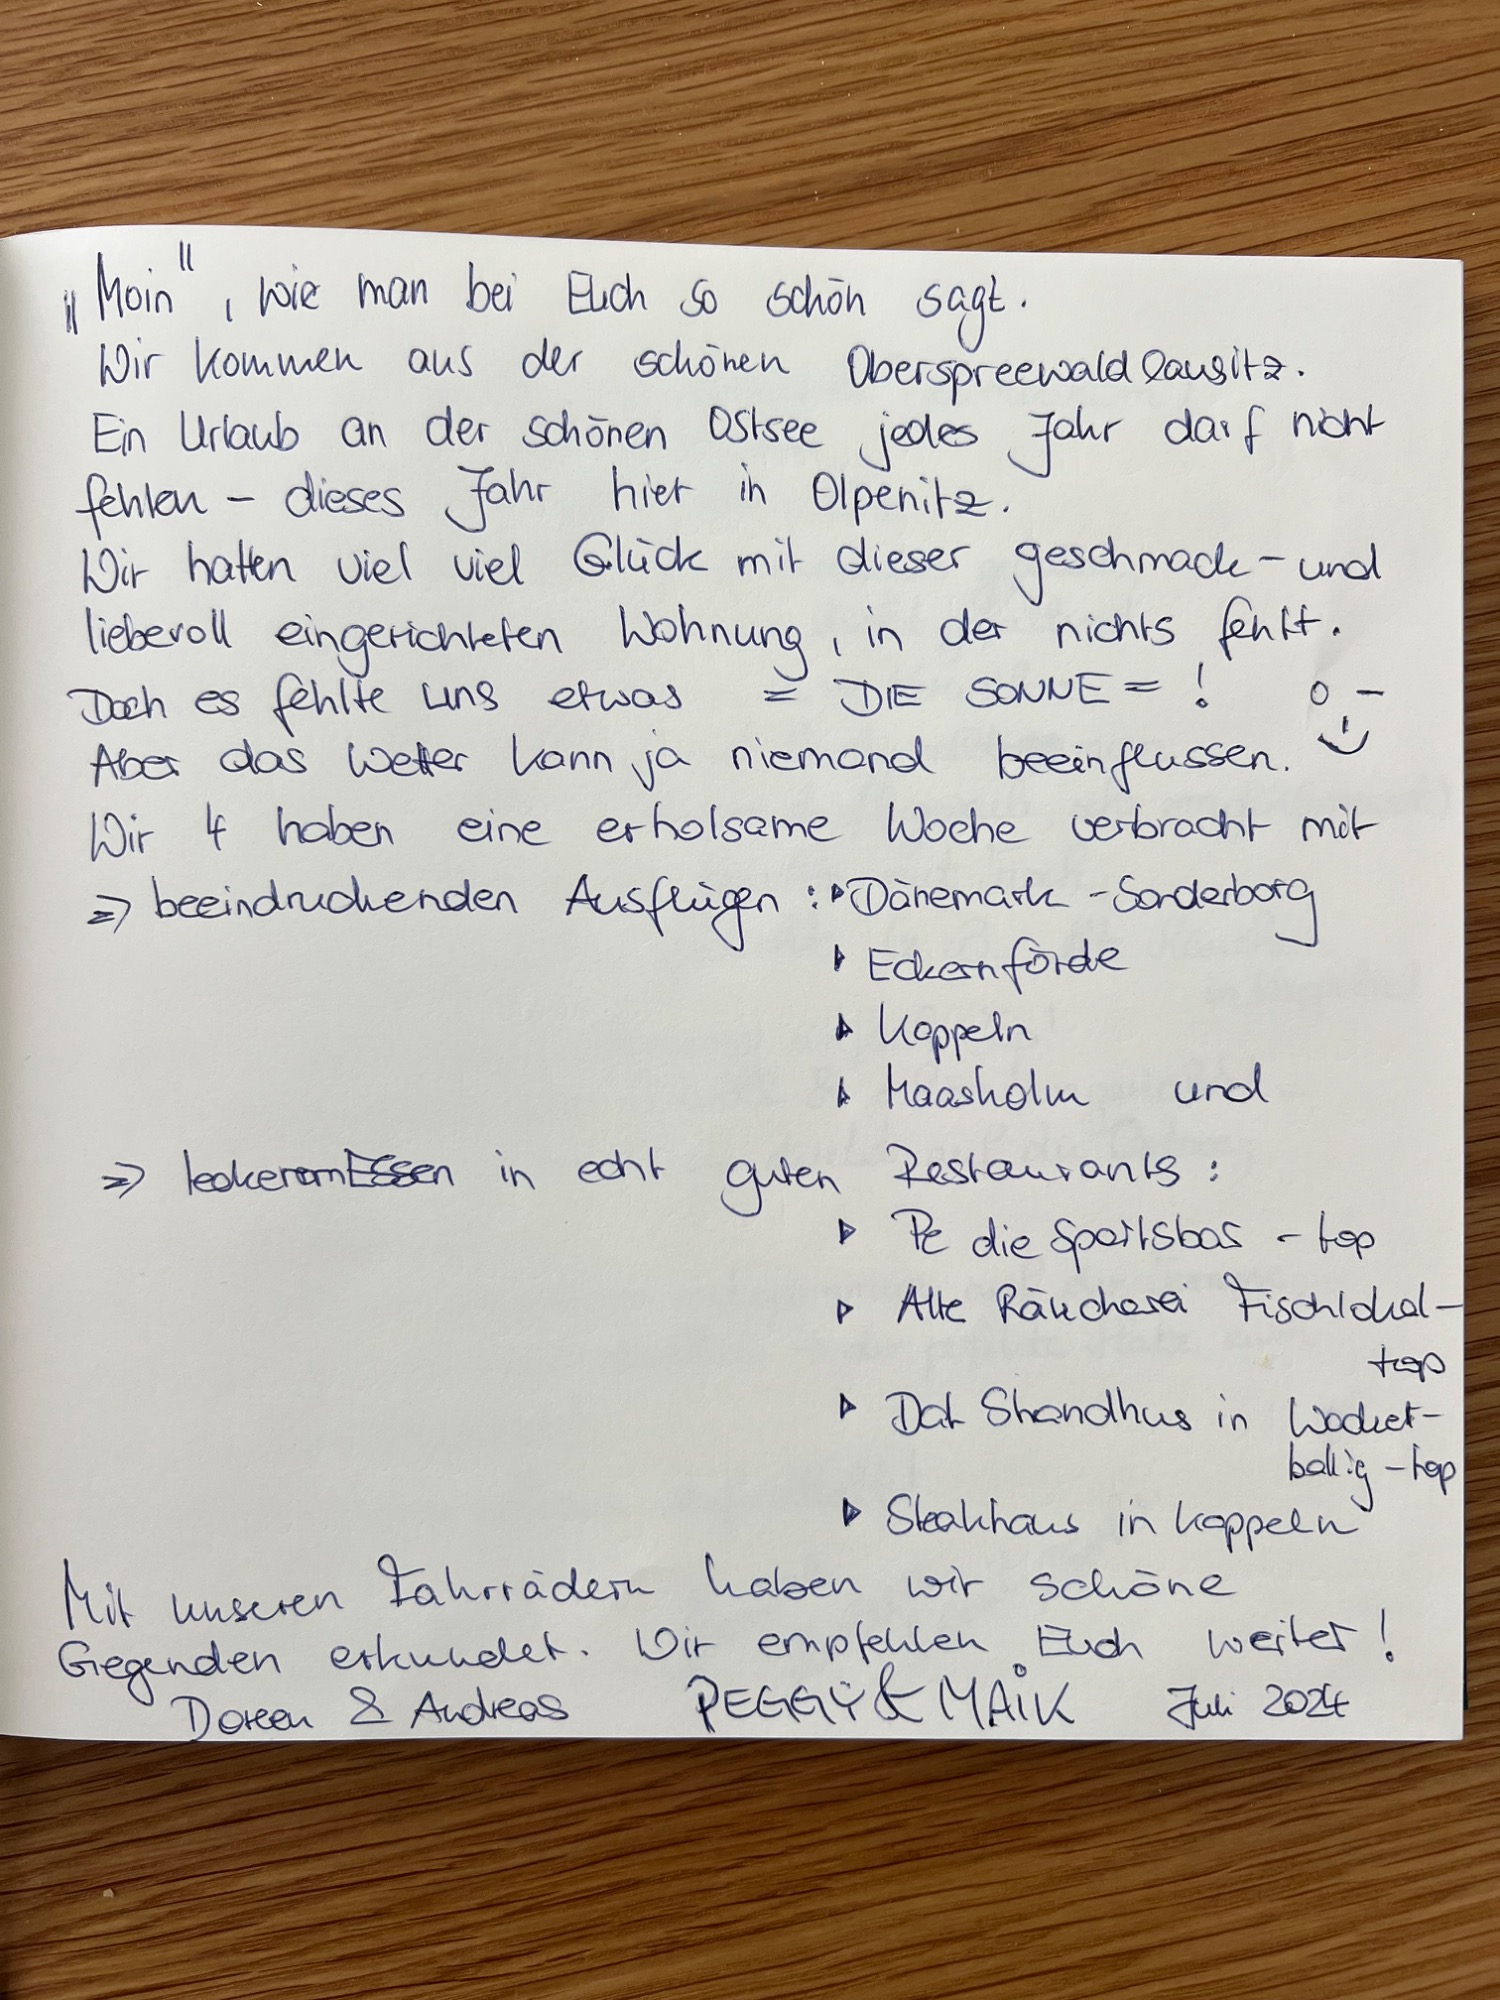 „Moin", wie man bei Euch so schön sagt.
Wir kommen aus der schönen Oberspreewaldlausitz.
Ein Urlaub an der schönen Ostsee jedes Jahr darf nicht
fehlen – dieses Jahr hier in Olpenitz.
Wir hatten viel viel Glück mit dieser geschmack- und
liebevoll eingerichteten Wohnung, in der nichts fehlt.
Doch es fehlte uns etwas = DIE SONNE = !
Aber das Wetter kann ja niemand beeinflussen.
Wir 4 haben eine erholsame Woche verbracht mit
=> beeindruckenden Ausflügen : ▸ Dänemark - Sonderborg
▸ Eckernförde
▸ Kappeln
▸ Maasholm und
=> leckerem Essen in echt guten Restaurants :
▸ Pe die Sportsbar - top
▸ Alte Räucherei Fischlokal -
top
▸ Dat Strandhus in Wacker-
ballig - top
▸ Steakhaus in Kappeln
Mit unseren Fahrrädern haben wir schöne
Gegenden erkundet. Wir empfehlen Euch weiter!
Doreen & Andreas PEGGY & MAIK Juli 2024